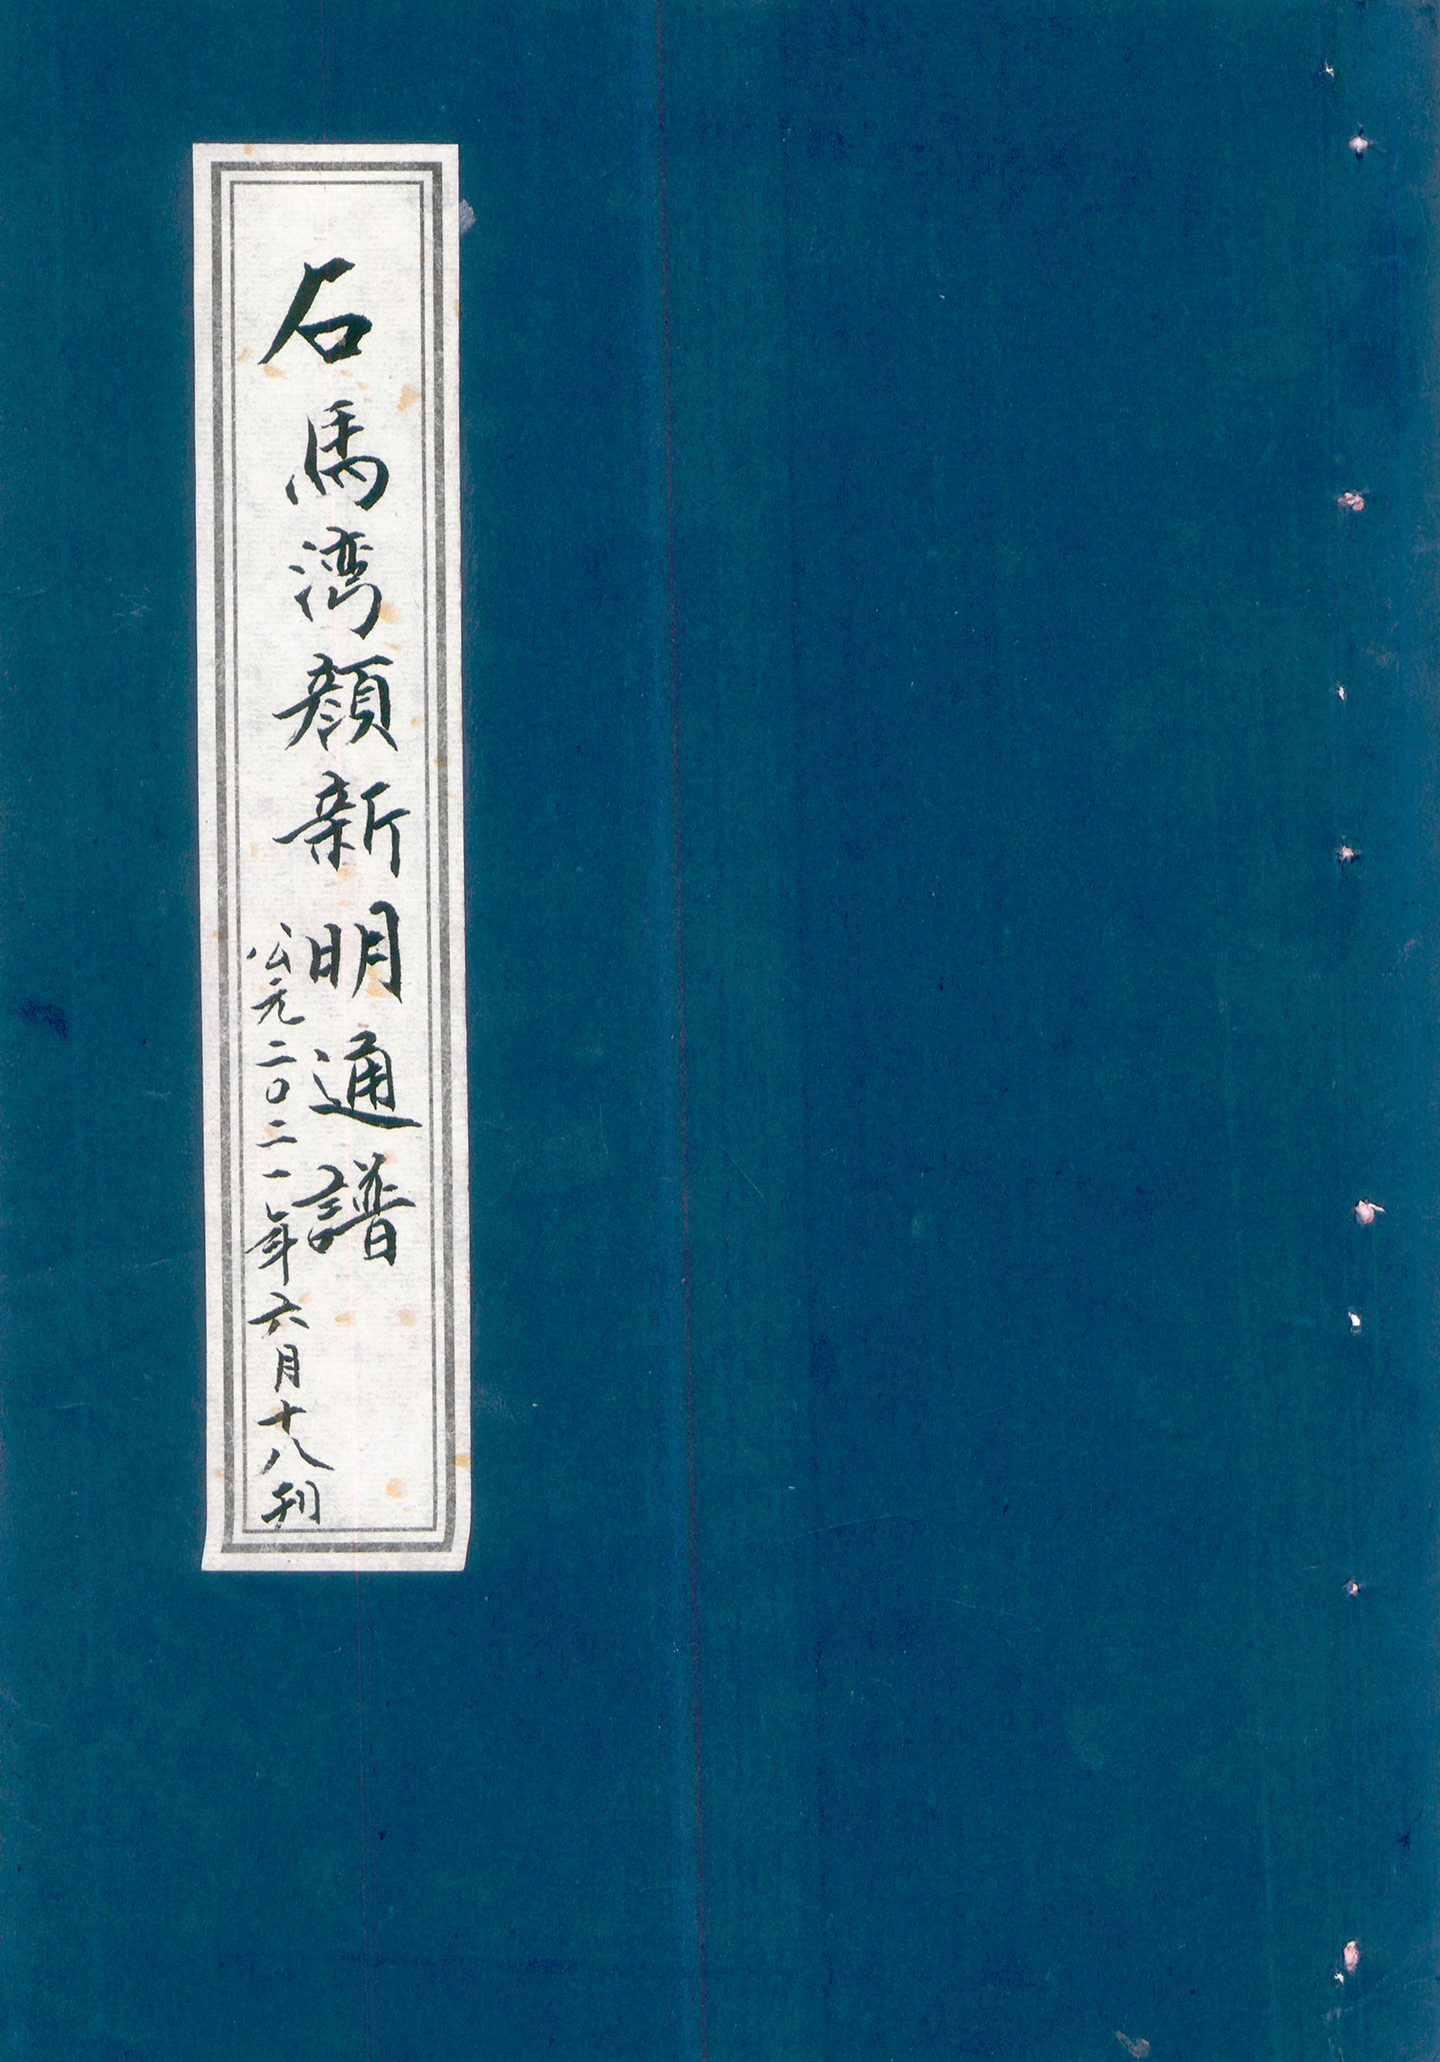 石馬湾顔新明通譜
公元二〇二一年六月十八刊